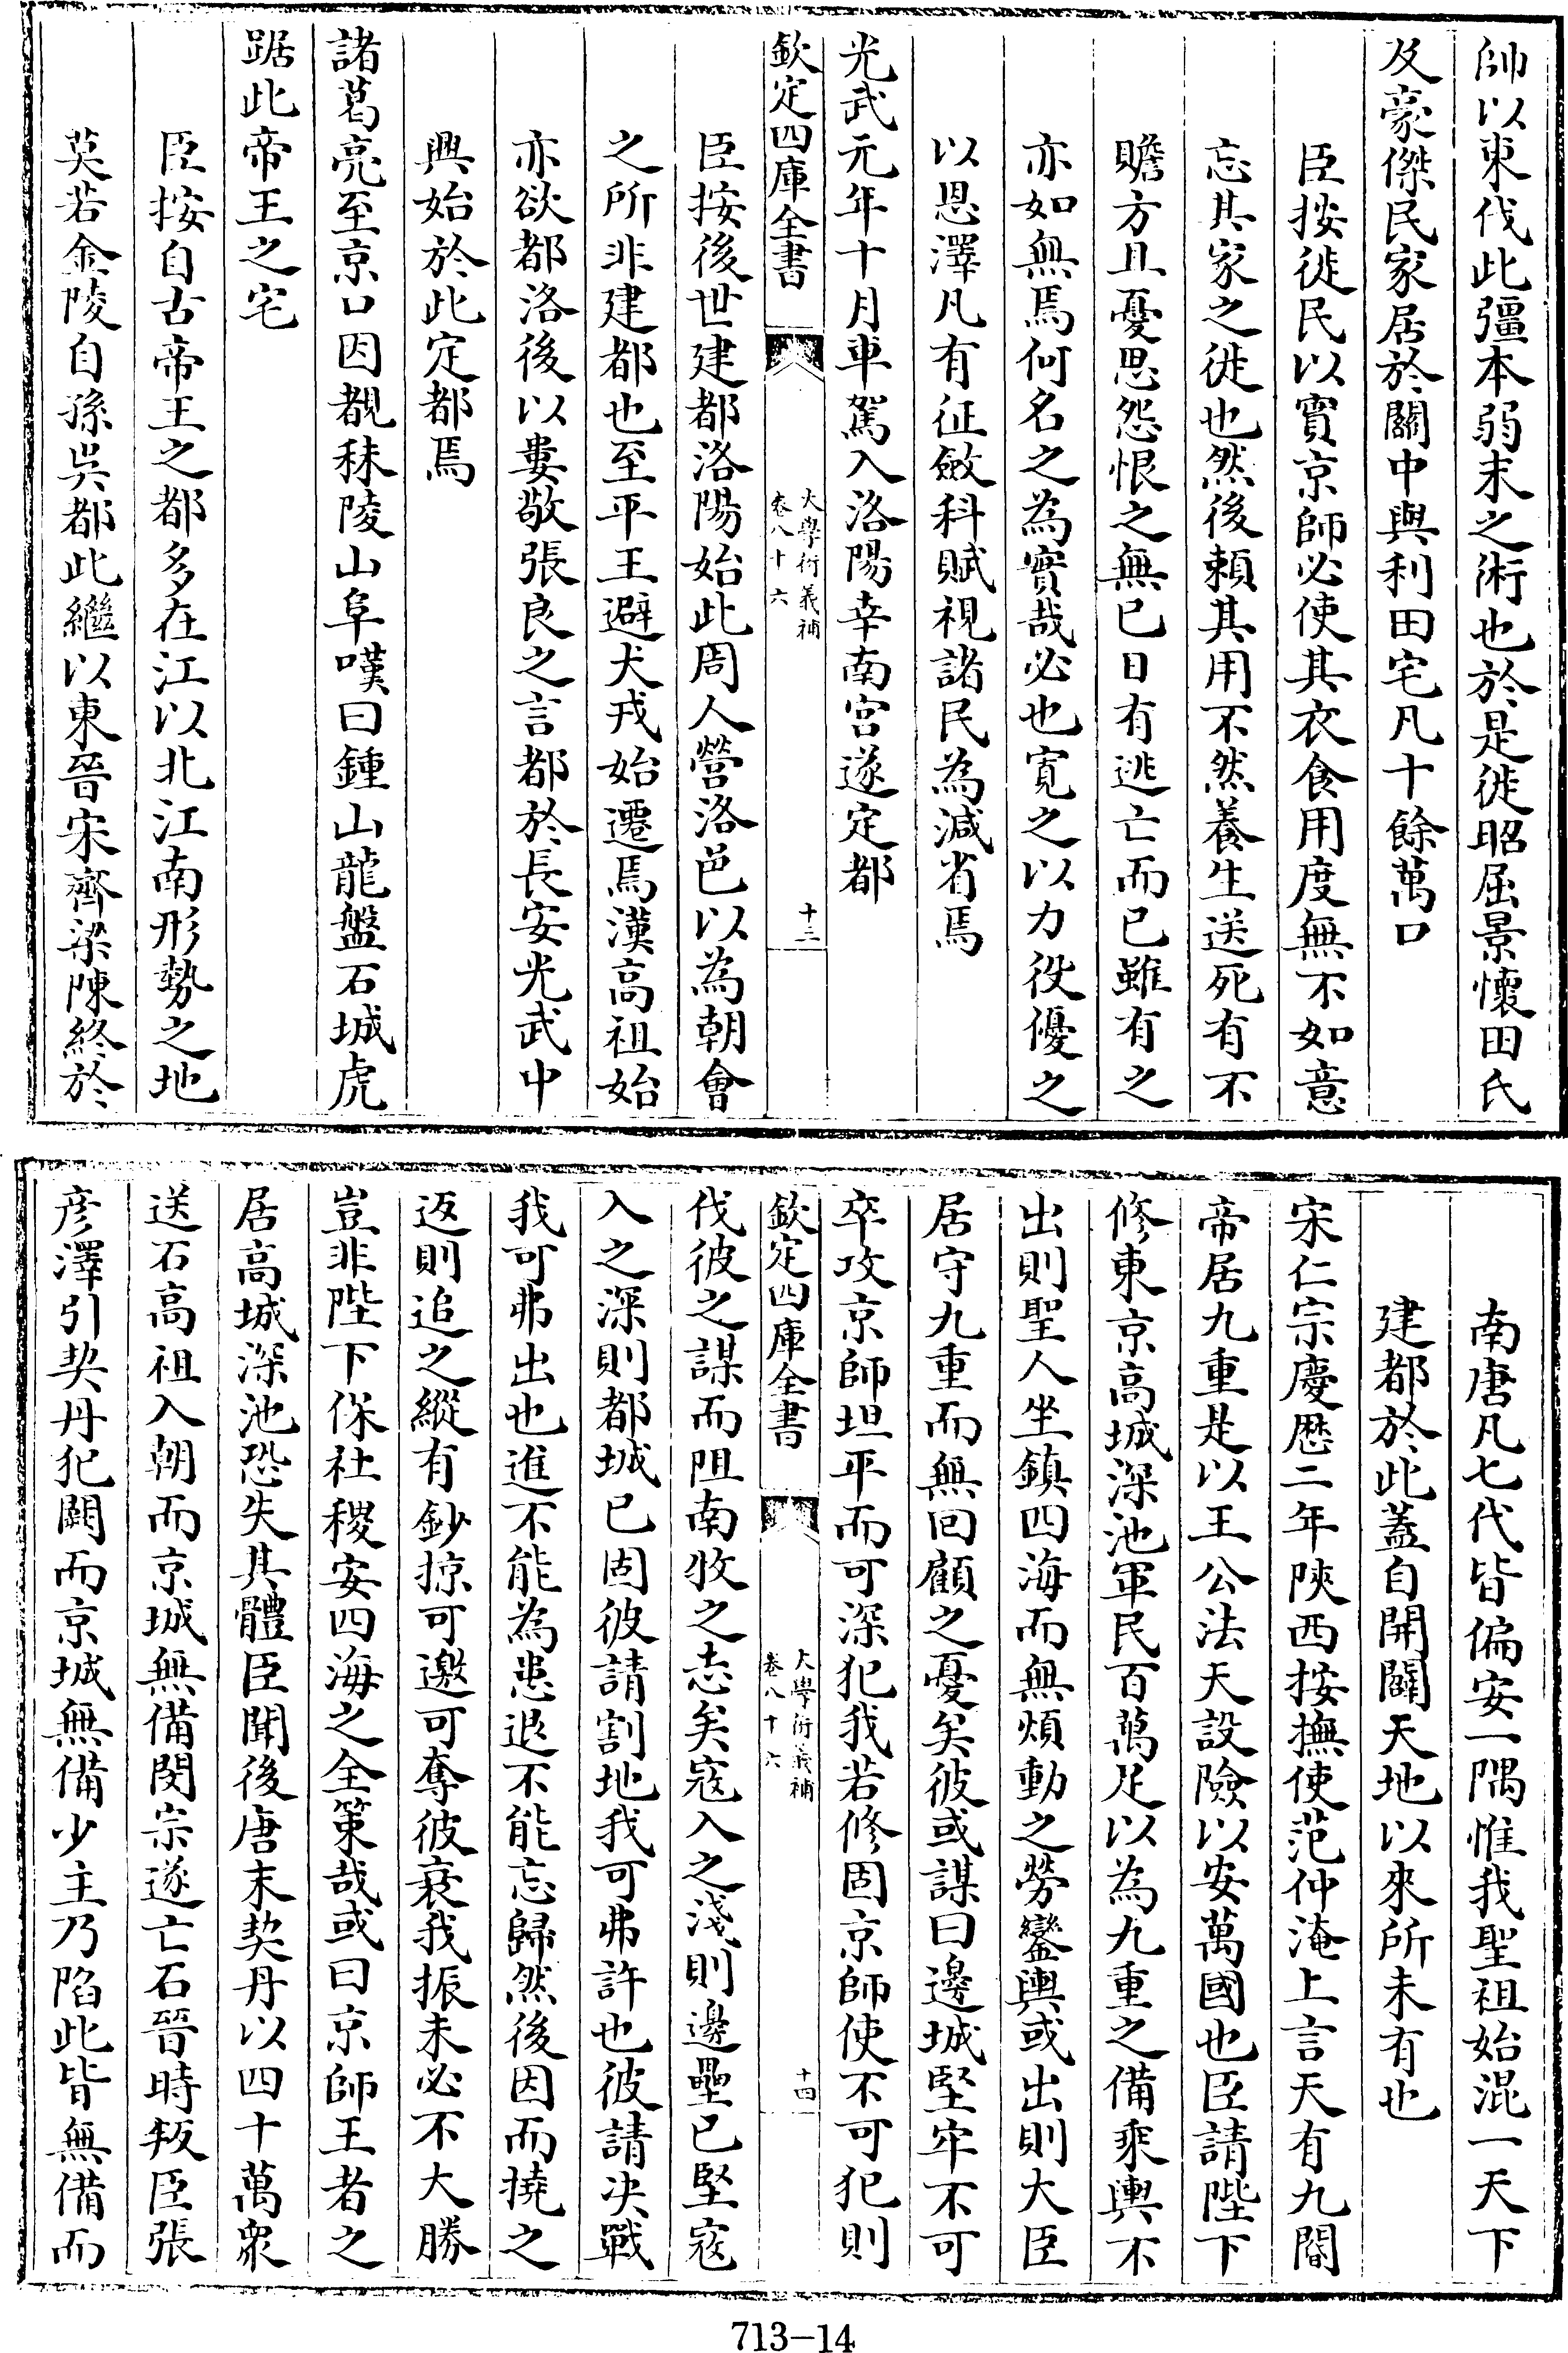 帥以東伐此彊本弱末之術也於是徙昭屈景懷田氏
及豪傑民家居於關中與利田宅凡十餘萬口
臣按徙民以實京師必使其衣食用度無不如意
忘其家之徙也然後頼其用不然養生送死有不
贍方且憂思怨恨之無已日有逃亡而已雖有之
亦如無焉何名之為實哉必也寛之以力役優之
以恩澤凡有征斂科賦視諸民為減省焉
光武元年十月車駕入洛陽幸南宫遂定都
欽定四庫全書
大學衍義補
卷八十六
十三
臣按後世建都洛陽始此周人營洛邑以為朝會
之所非建都也至平王避犬戎始遷焉漢高祖始
亦欲都洛後以婁敬張良之言都於長安光武中
興始於此定都焉
諸葛亮至京口因覩秣陵山阜嘆曰鍾山龍盤石城虎
踞此帝王之宅
臣按自古帝王之都多在江以北江南形勢之地
莫若金陵自孫吳都此繼以東晉宋齊梁陳終於
南唐凡七代皆偏安一隅惟我聖祖始混一天下
建都於此蓋自開闢天地以來所未有也
宋仁宗慶厯二年陜西按撫使范仲淹上言天有九閽
帝居九重是以王公法天設險以安萬國也臣請陛下
修東京高城深池軍民百萬足以為九重之備乘輿不
出則聖人坐鎮四海而無煩動之勞鑾輿或出則大臣
居守九重而無回顧之憂矣彼或謀曰邊城堅牢不可
卒攻京師坦平而可深犯我若修固京師使不可犯則
欽定四庫全書
大學衍義補
卷八十六
十四
伐彼之謀而阻南牧之志矣寇入之淺則邊壘已堅寇
入之深則都城已固彼請割地我可弗許也彼請決戰
我可弗出也進不能為患退不能忘歸然後因而撓之
返則追之縱有鈔掠可邀可奪彼衰我振未必不大勝
豈非陛下保社稷安四海之全策哉或曰京師王者之
居高城深池恐失其體臣聞後唐末契丹以四十萬衆
送石高祖入朝而京城無備閔宗遂亡石晉時叛臣張
彦澤引契丹犯闕而京城無備少主乃陷此皆無備而
713-14